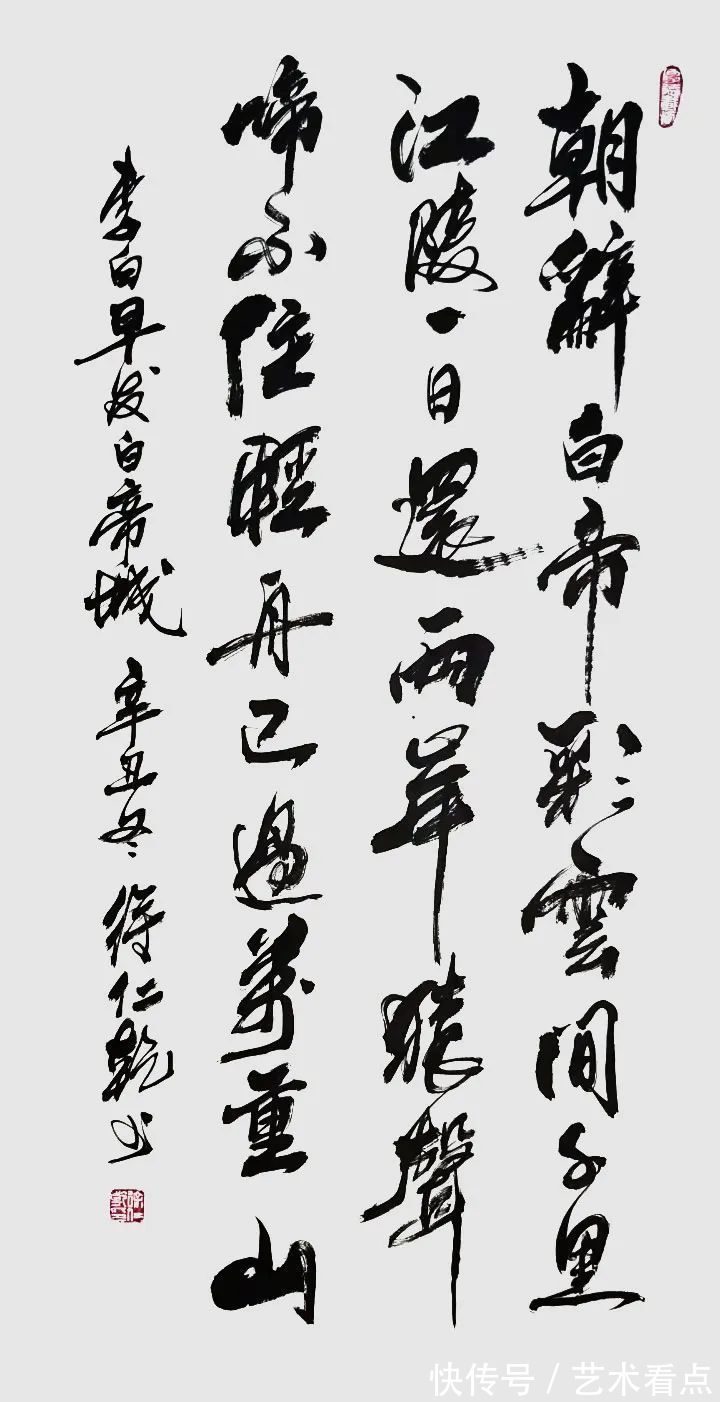 朝辭白帝彩雲間千里
江陵一日還兩岸猿聲
啼不住輕舟已過萬重山
李白早发白帝城 辛丑冬 徐仁乾书
快传号 / 艺术看点